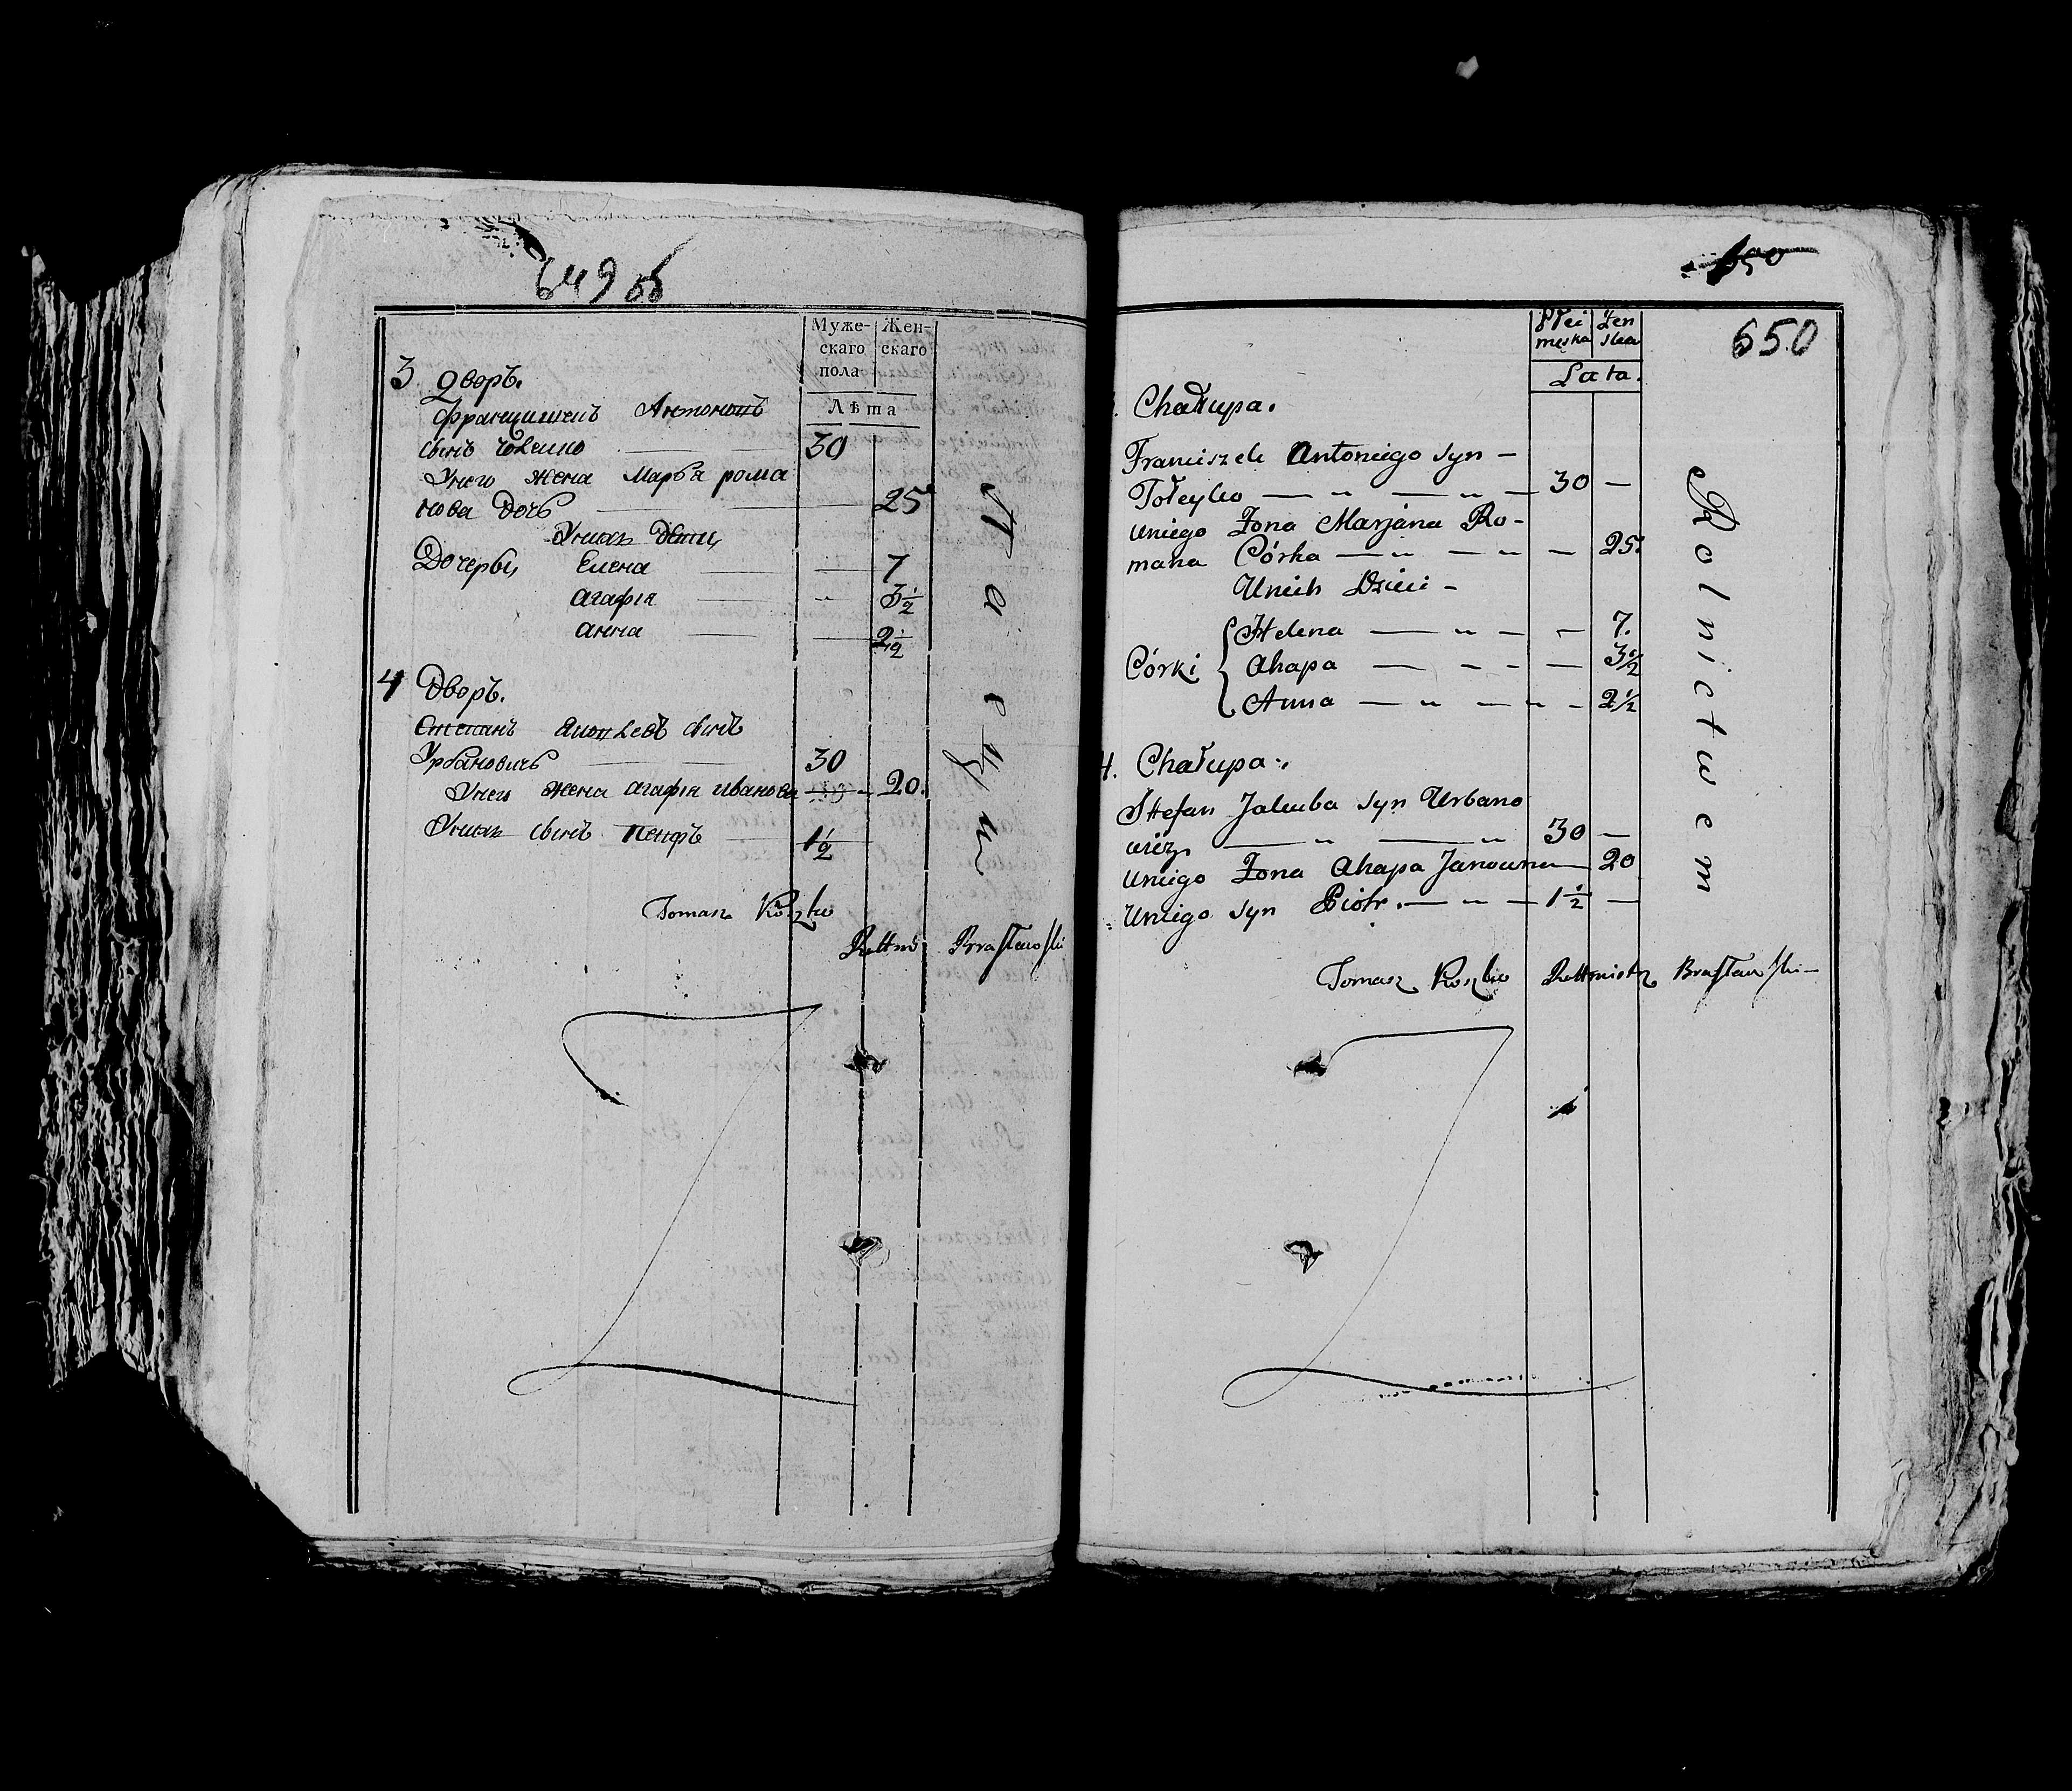 649 об
Муже- Жен-
скаго скаго
пола
Лѣта
3 дворъ.
Францишекъ Антоновъ
сынъ 30
У него жена Марья рома
нова дочь 25
У нихъ дети
Дочерьи Елена 7
Агафiя 3 1/2
Анна 2 1/2
4 Дворъ.
Степанъ сынъ
Урбановичъ 30
У него жена Агафiя Иванова 20.
У нихъ сынъ Петръ 1 1/2
Tomasz Kozko
Rottm Brasławski
650
650
Płci Żen
męska ska
Lata.
Chałupa.
Franciszek Antoniego syn –
Tołeyko — " — " — 30 —
u niego Żona Marjana Ro-
mana Córka — " — " — 25.
U nich Dzieci –
Helena — " — — 7.
Córki Ahapa — - - — 3 1/2
Anna — " — " - 2 1/2
4. Chałupa.
Stefan Jakuba syn Urbano
wicz — " — " 30 —
u niego Żona Ahapa Janowna — 20
u niego syn Piotr. — " — 1 1/2 —
Rolnictwem
Tomasz Kozko Rottmistrz Brasławski —